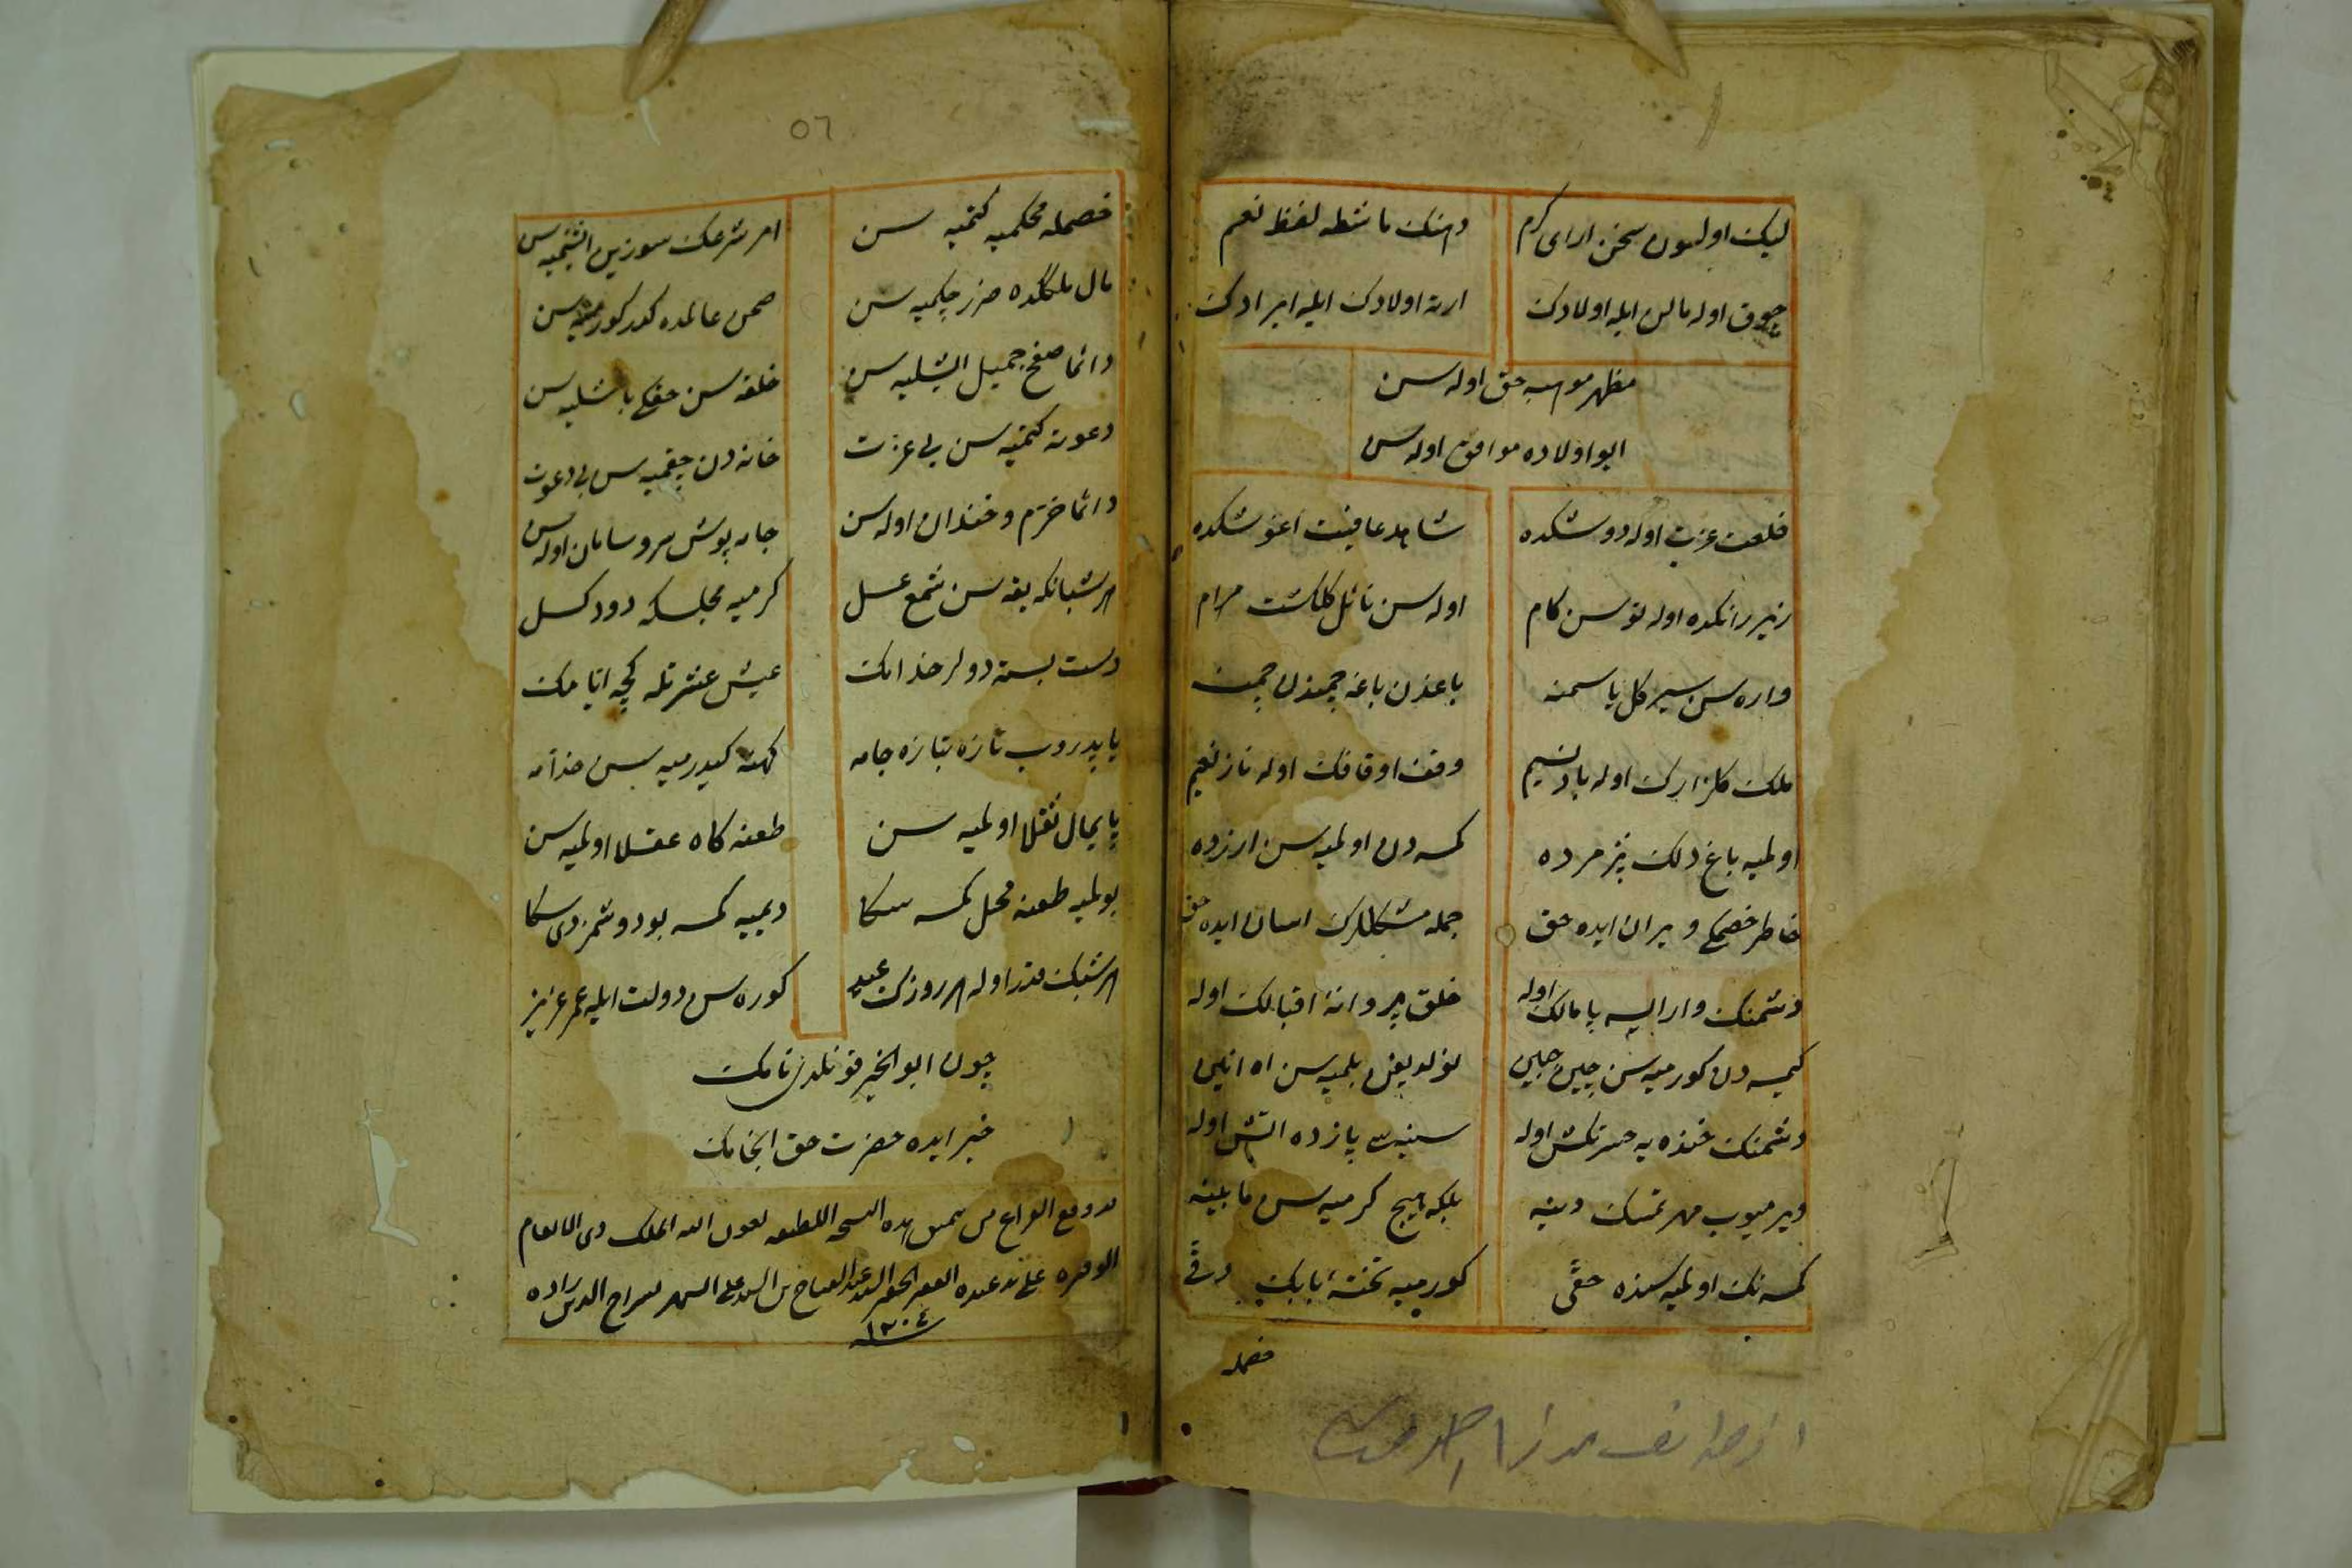 لیک اولسون سخن ارای کرم
دهنک ماشطه لفظ نعم
چوق اوله مالن ایله اولادک
ارته اولادک ایله ایرادک
مظهر موهبه حق اوله سن
ابو اولاده موافق اوله سن
خلعت عزت اوله دوشکده
شاهد عافیت اغوشکده
زیر رانکده اوله توسن کام
اوله سن نائل کلکشت مرام
واره سن سیر کل یاسمنه
باغدن باغه چمندن چمنه
ملک کلزارک اوله باد نسیم
وقف اوقاتک اوله ناز نعیم
اولمیه باغ دلک پژمرده
کمسه دن اولمیه سن ازرده
خاطر خصمکی ویران ایده حق
جمله مشکللرک اسان ایده حق
دشمنک وار ایسه پامالک اوله
خلق پروانه اقبالک اوله
کیمسه دن کورمیه سن چین جبین
بلمیه سن اه انین
دشمنک خنده یه حسرتکش اوله
سینه سی یازده اتش اوله
ویرمیوب مهر تمسک دینه
بلکه هیچ کرمیه سن مابینه
کمسه نک اولمیه سنده حقی
کورمیه تخته بابک دقی
خصمله
خصمله محکمیه کتمیه سن
امر شرعک سوزین ایشتمیه سن
مال ملکگده ضرر چکمیه سن
صحن عالمده کدر کورمیه سن
دائما صفح جمیل ایشلیه سن
خلقه سن حقکی باغشلیه سن
دعوته کتمیه سن بی عزت
خانه دن چقمیه سن بی دعوت
دائما خرم و خندان اوله سن
جامه پوش سر و سامان اوله سن
هر شبانکه یقه سن شمع عسل
کرمیه مجلسکه دود کسل
دست بسته دولر خدامک
عیش عشرتله کچه ایامک
یاپدروب تازه بتازه جامه
کهنه کیدرمیه سن خدامه
پایمال ثقلا اولمیه سن
طعنه کاه عقلا اولمیه سن
بولمیه طعنه محل کمسه سکا
دیمیه کمسه بو دوشمزدی سکا
هر شبک قدر اوله هر روزک عید
کوره سن دولت ایله عمر عزیز
چون ابو الخیر قونلدی نامک
خیر ایده حضرت حق انجامک
قد وقع الفراغ من تنمیق هذه النسخه اللطیفه بعون الله الملک ذی الانعام
الوفیره علی ید عبده الفقیر الحقیر السید عبد الفتاح بن السید علی الشهیر بسراج الدین زاده
سنه ١٢٠٤
٥٦